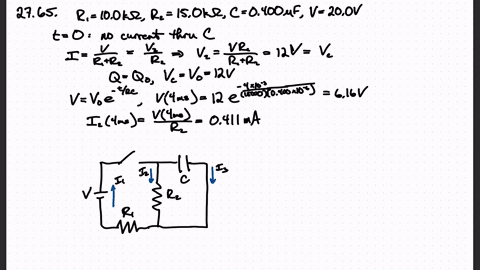 27.65. R₁=10.0kΩ, R₂=15.0kΩ, C=0.400μF, V=20.0V
t=0: no current thru C
I = V/(R₁+R₂) = V₂/R₂ ⇒ V₂ = VR₂/(R₁+R₂) = 12V = V_c
Q=Q₀, V_c=V₀=12V
V=V₀e^(-t/RC), V(4ms) = 12 e^(-4×10⁻³/(15000)(0.400×10⁻⁶)) = 6.16V
I₂(4ms) = V(4ms)/R₂ = 0.411mA
I₁ I₂ C I₃
V R₂
R₁